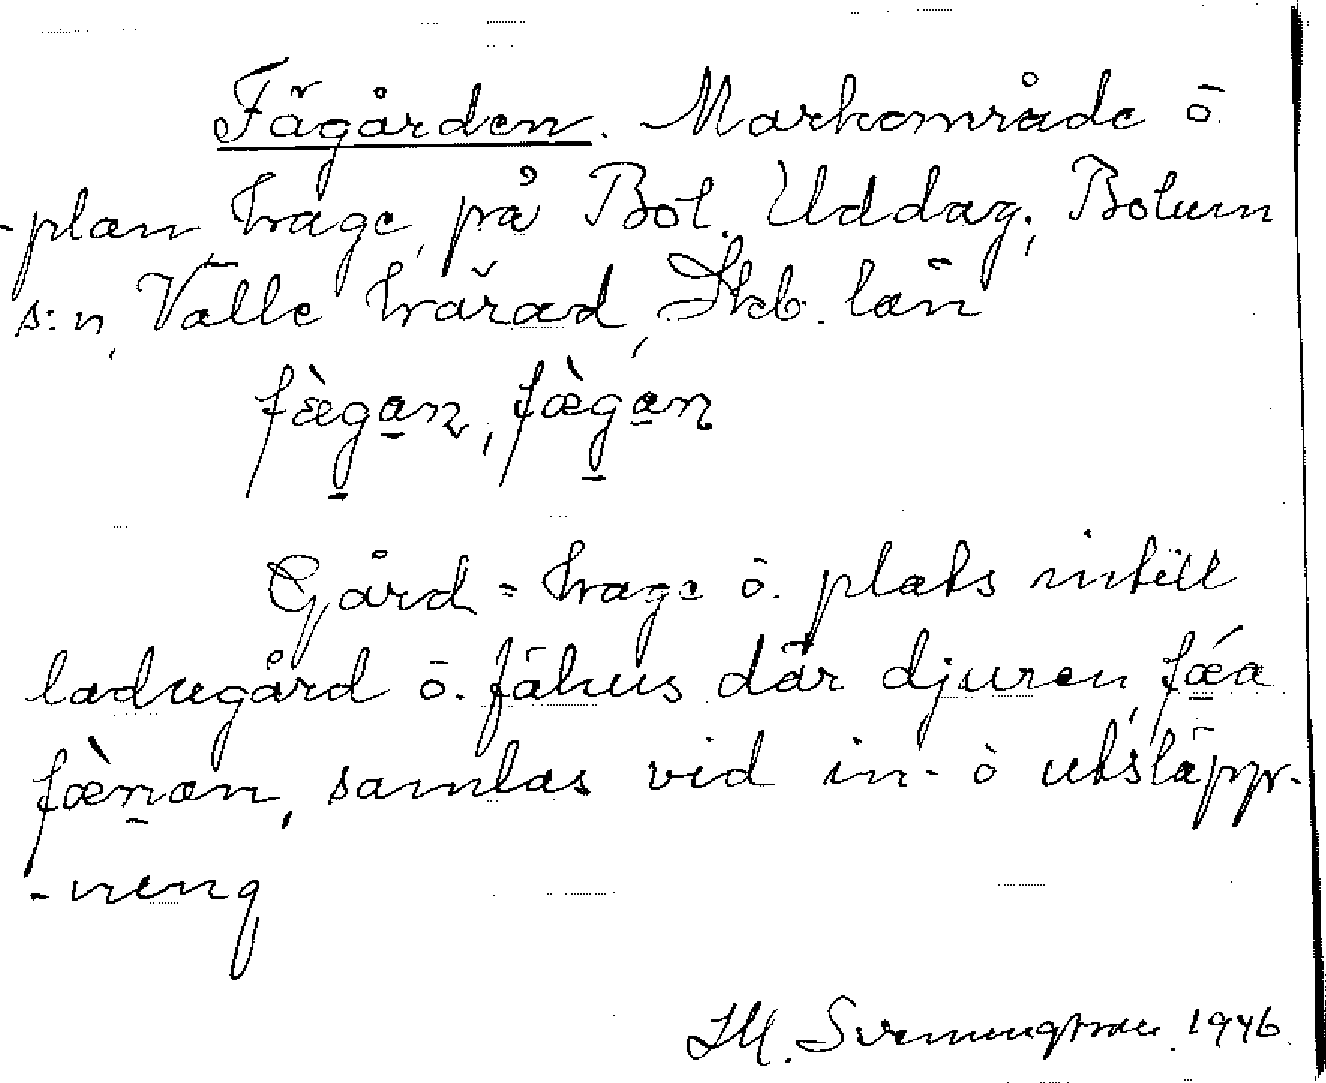 Fägården. Markområde ö
-plan, hage, på Bol. Uddag; Bolum
s:n, Valle härad, Skb. län
fæ̀gan, fæ̀gan
Gård = hage ö. plats intill
ladugård ö. fähus där djuren, fǽa
fæ̀nan, samlas vid in- ö utsläpp-
-ning
1946